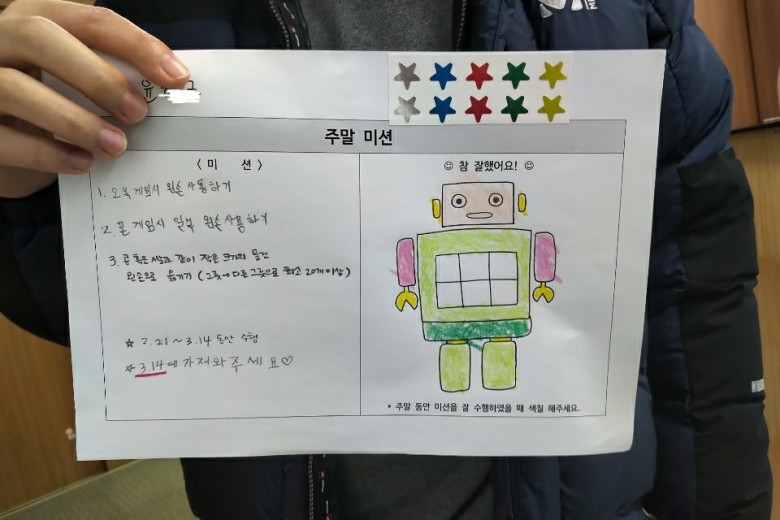 유
주말 미션
〈 미 션 〉
1. 오목 게임시 왼손 사용하기
2. 폰 게임시 일부 왼손 사용하기
3. 콩 혹은 쌀알과 같이 작은 크기의 물건
왼손으로 옮기기 ( 그릇→다른 그릇으로 최소 20개 이상)
☆ 2.21 ~ 3.14 동안 수행
☆ 3.14에 가져와주세요♡
☺ 참 잘했어요! ☺
* 주말 동안 미션을 잘 수행하였을 때 색칠 해주세요.